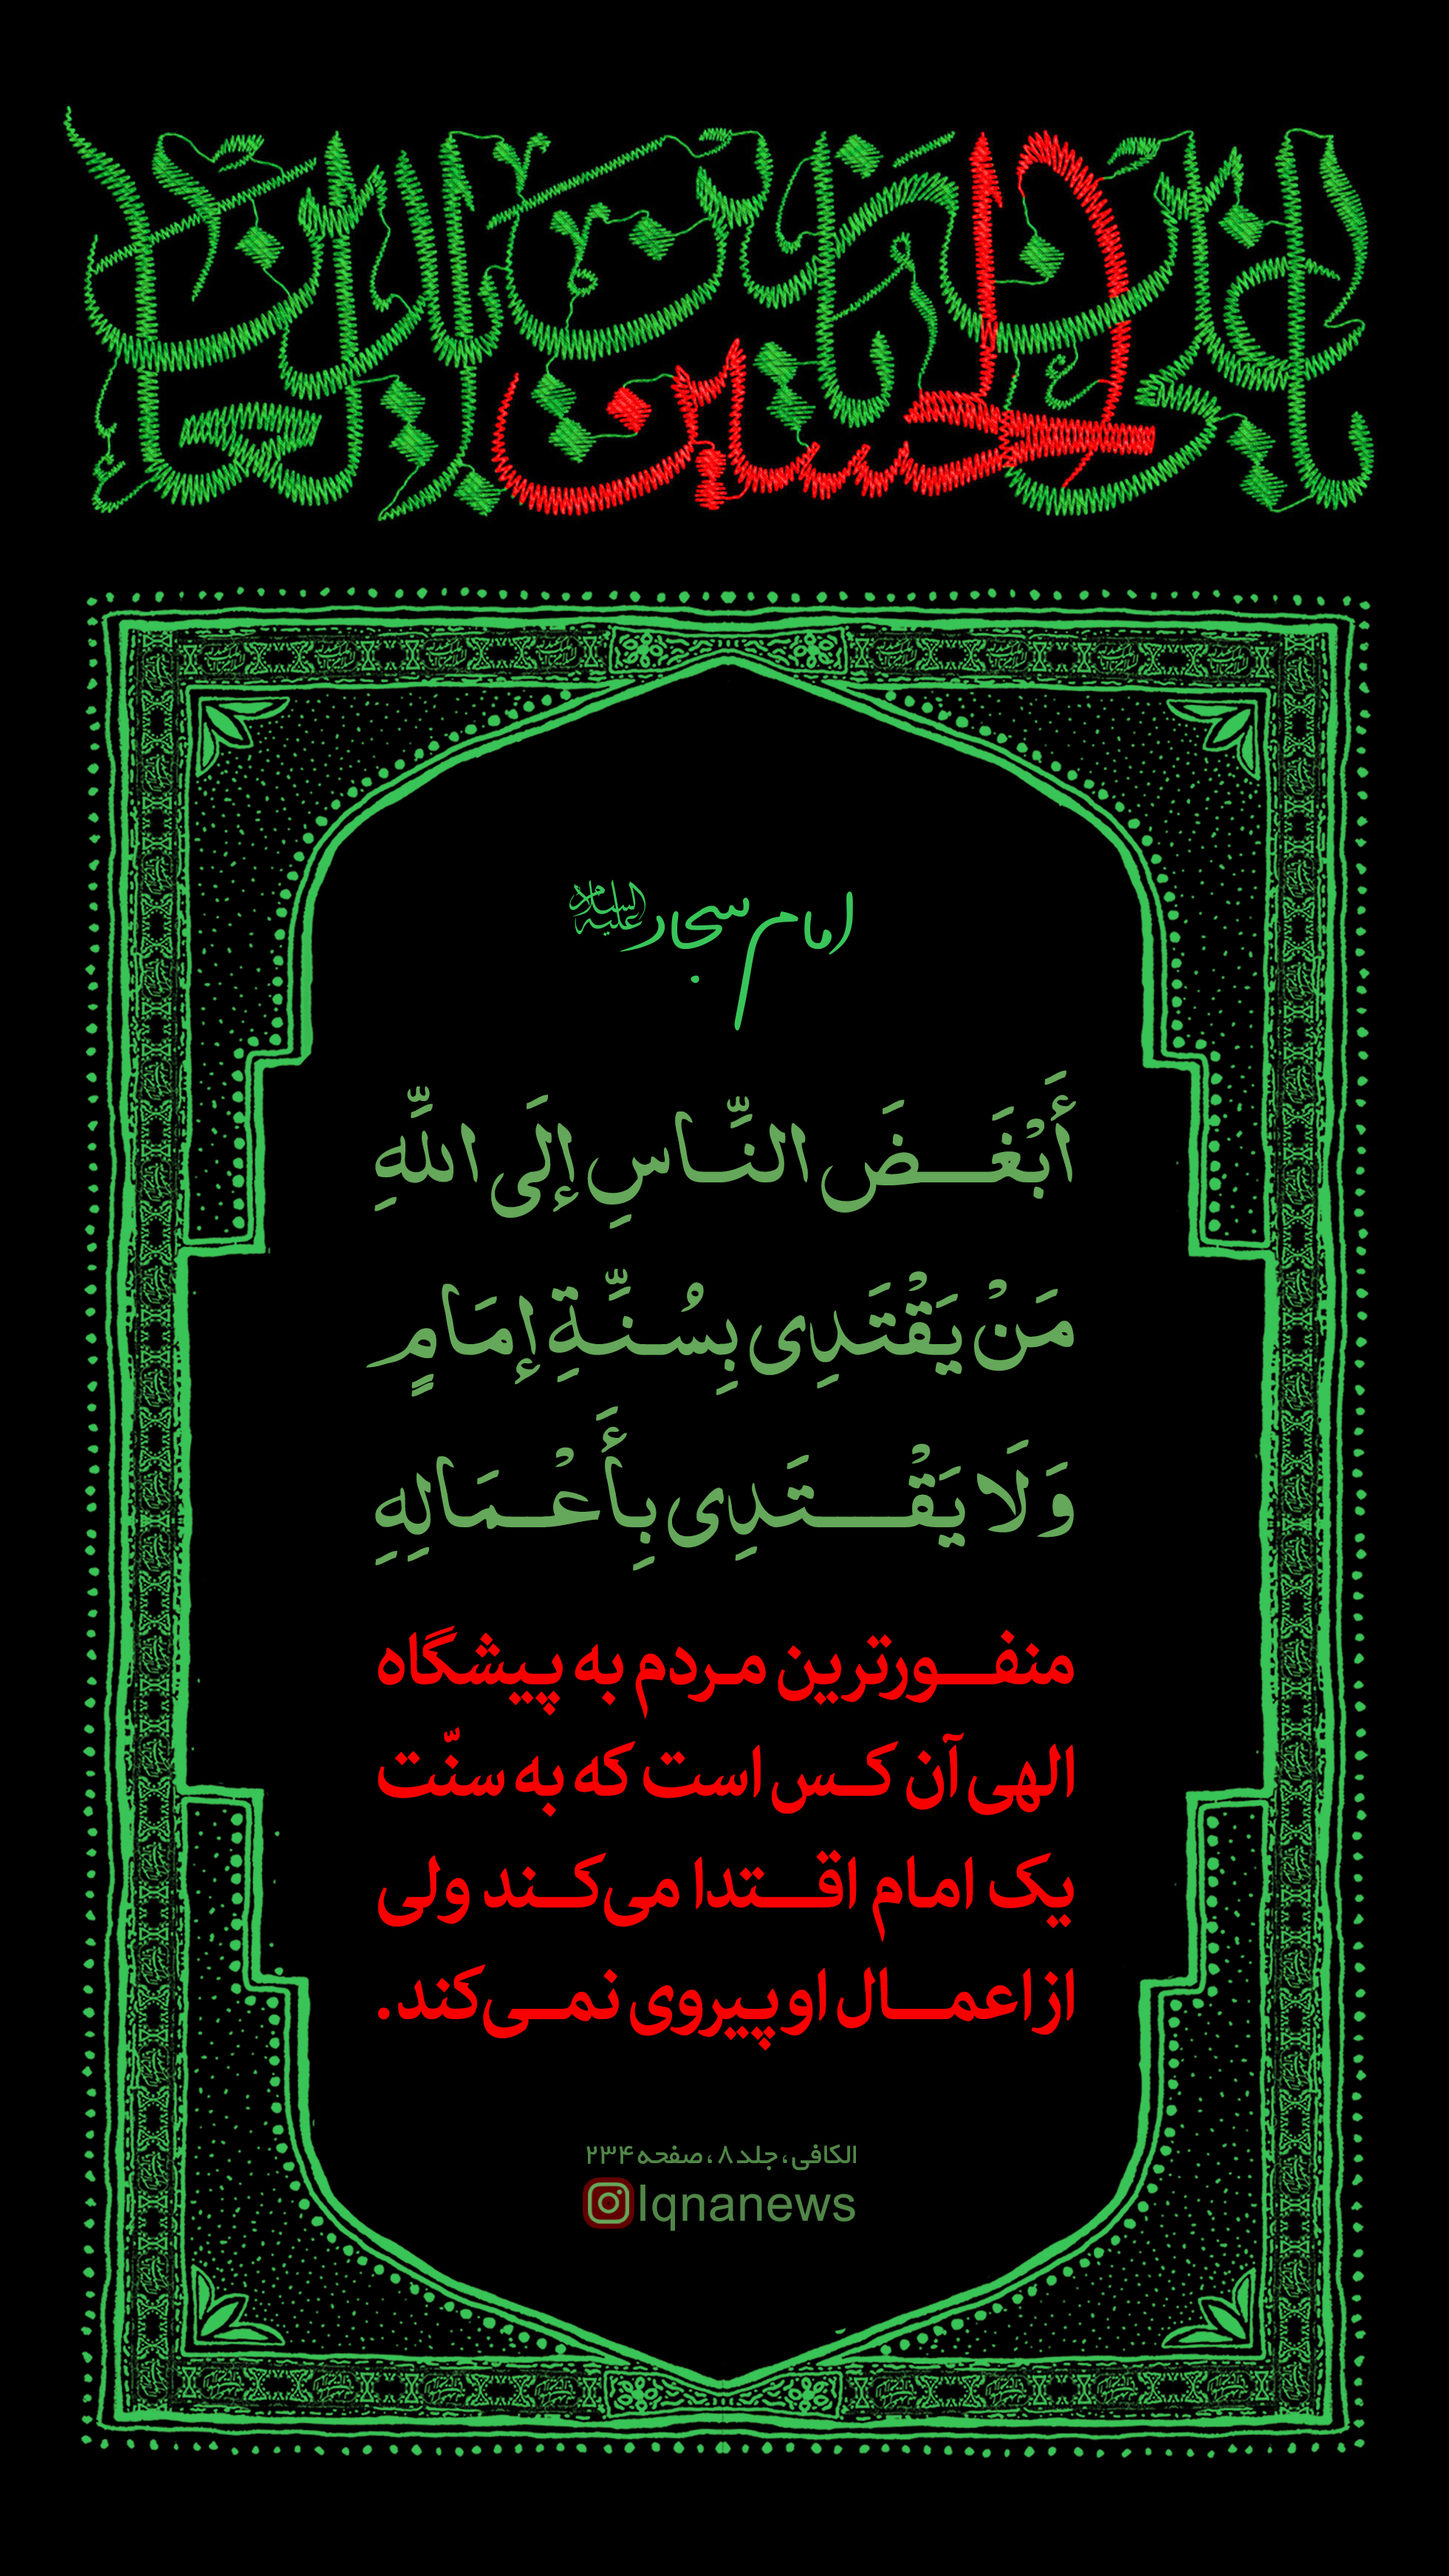 الحسین
امام سجاد علیه السلام
أَبْغَضَ النَّاسِ إِلَی اللَّهِ
مَنْ یَقْتَدِی بِسُنَّةِ إِمَامٍ
وَلَا یَقْتَدِی بِأَعْمَالِهِ
منفورترین مردم به پیشگاه
الهی آن کس است که به سنّت
یک امام اقتدا می‌کند ولی
از اعمال او پیروی نمی‌کند.
الکافی، جلد ۸، صفحه ۲۳۴
Iqnanews